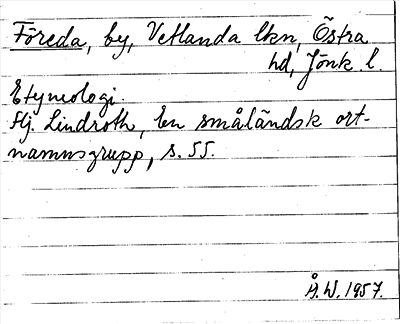 Föreda, by, Vetlanda lkn, Östra
hd, Jönk. l.
Etymologi.
Hj. Lindroth, En småländsk ort-
namnsgrupp, s. 55.
Å.W. 1957.